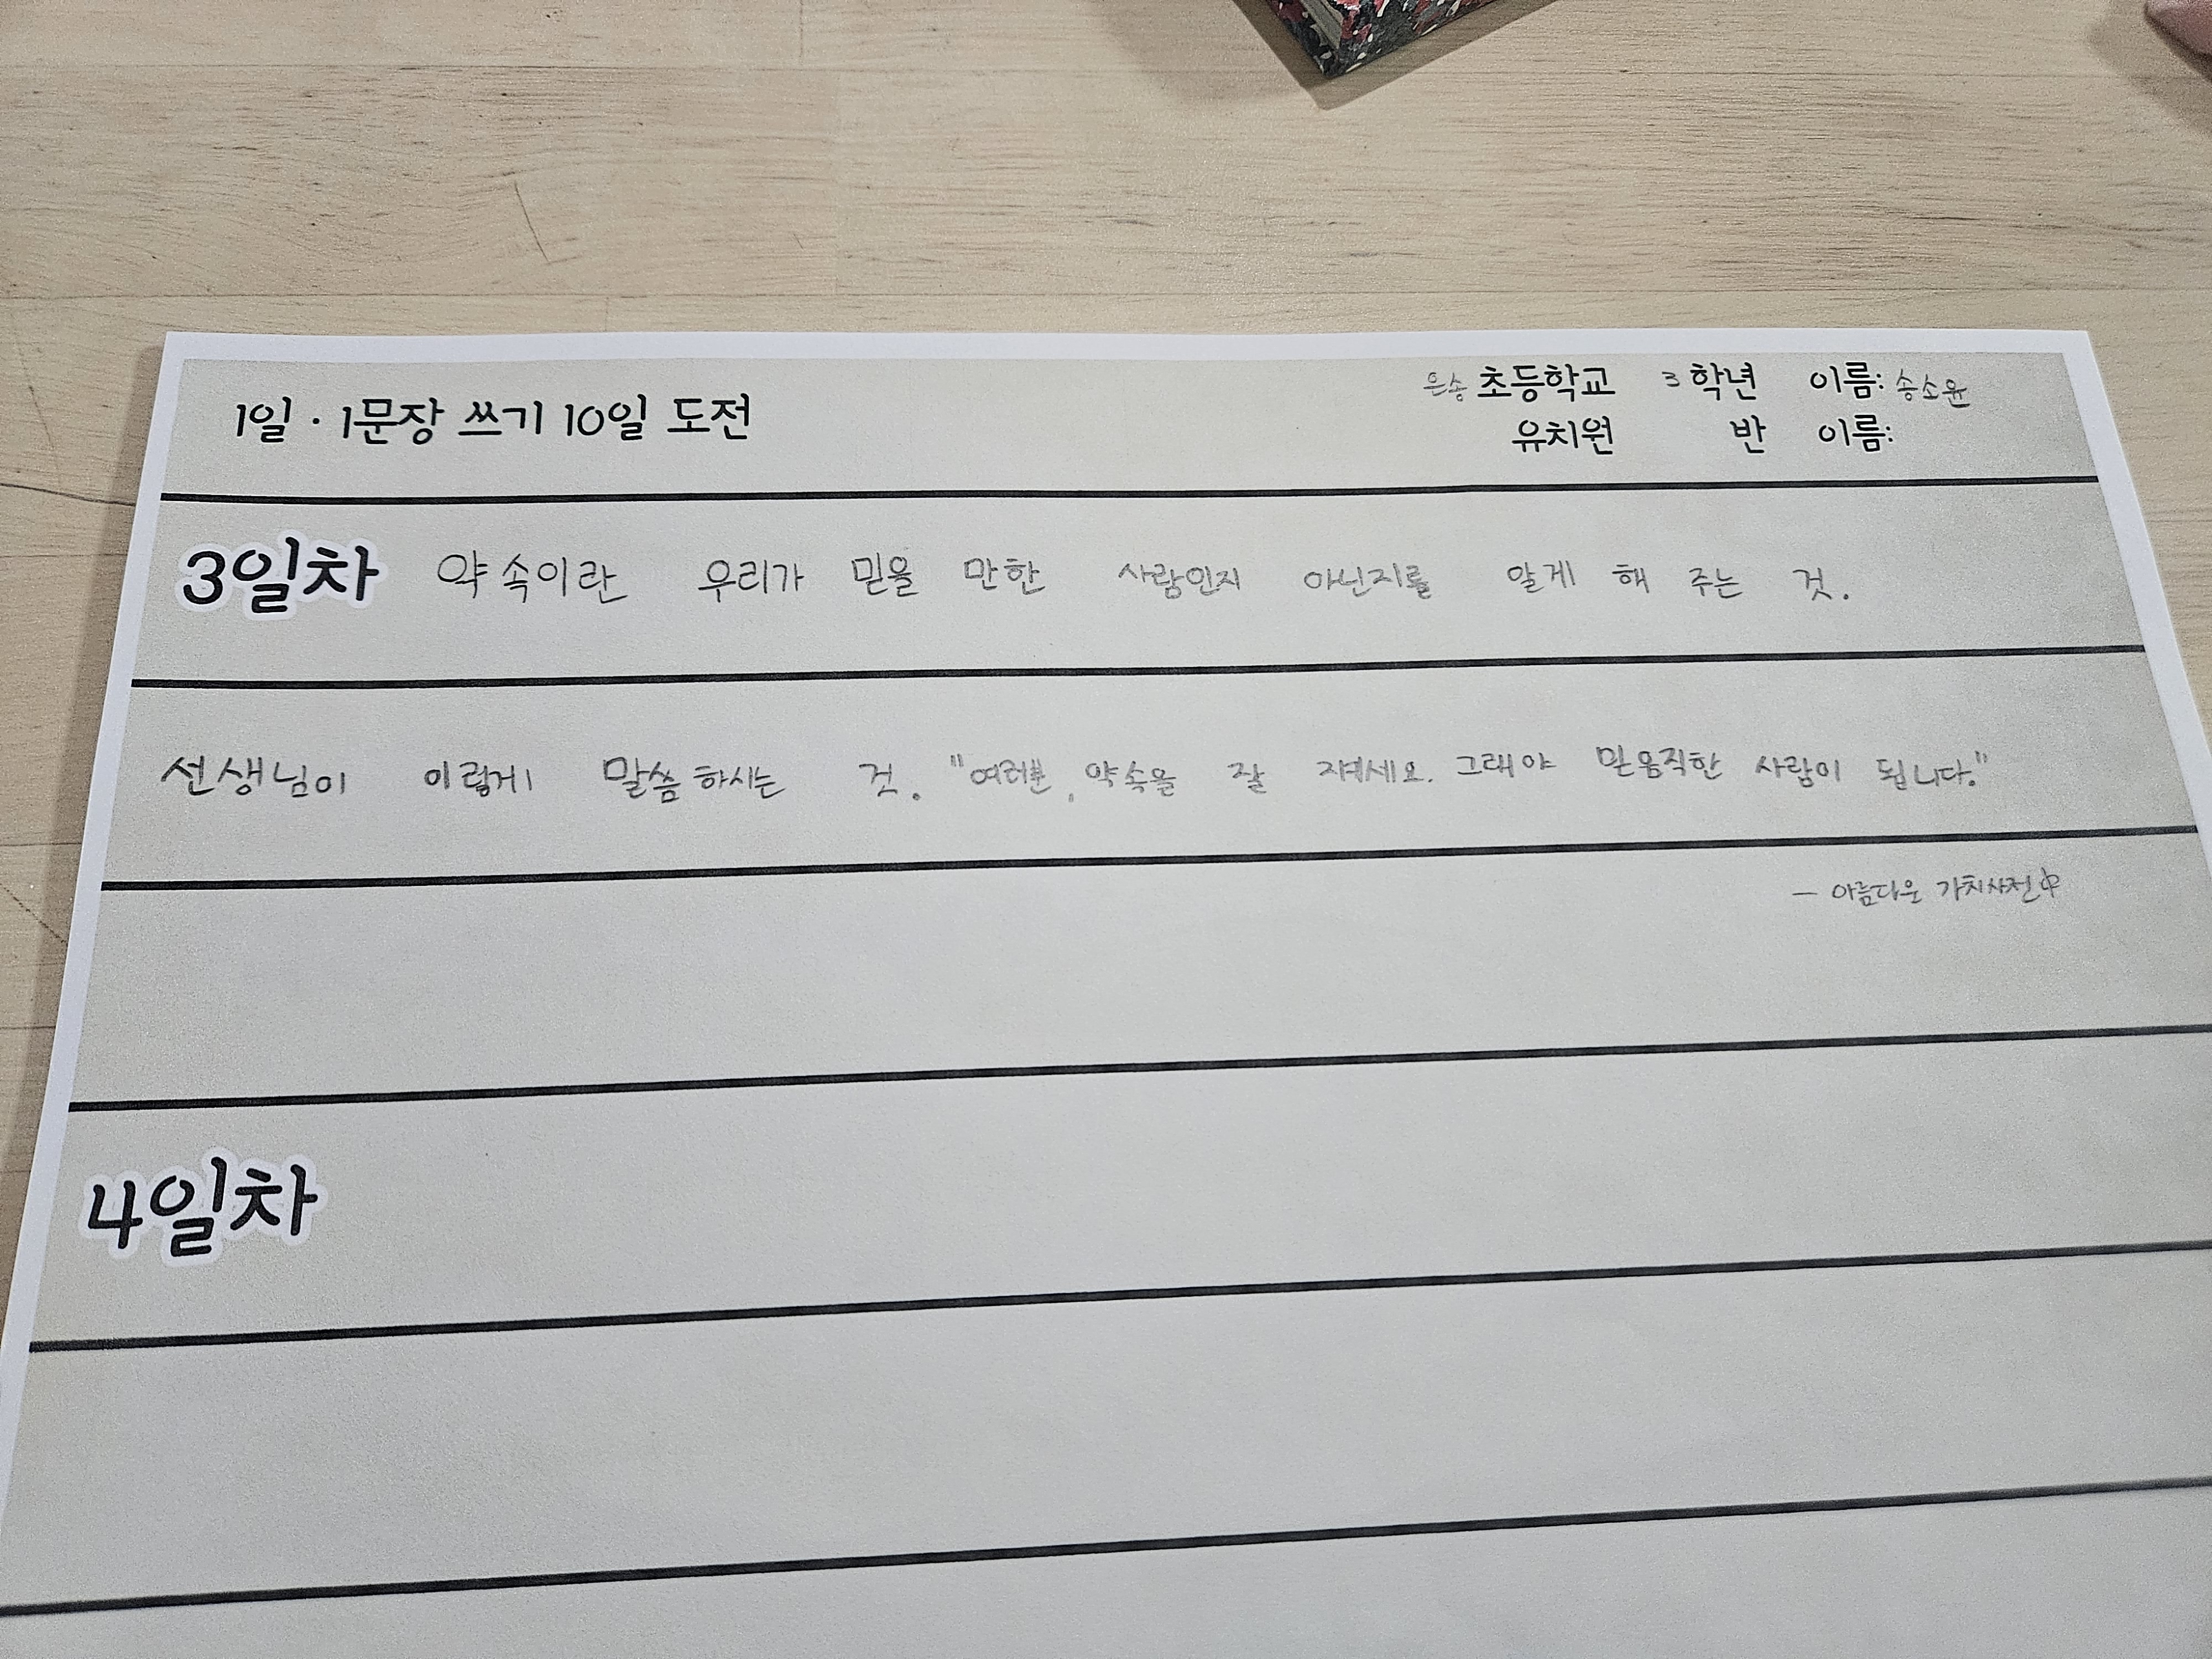 1일 · 1문장 쓰기 10일 도전
은송 초등학교 3 학년 이름: 송소윤
유치원 반 이름:
3일차 약속이란 우리가 믿을 만한 사람인지 아닌지를 알게 해 주는 것.
선생님이 이렇게 말씀하시는 것. "여러분, 약속을 잘 지켜세요. 그래야 믿음직한 사람이 됩니다."
― 아름다운 가치사전中
4일차